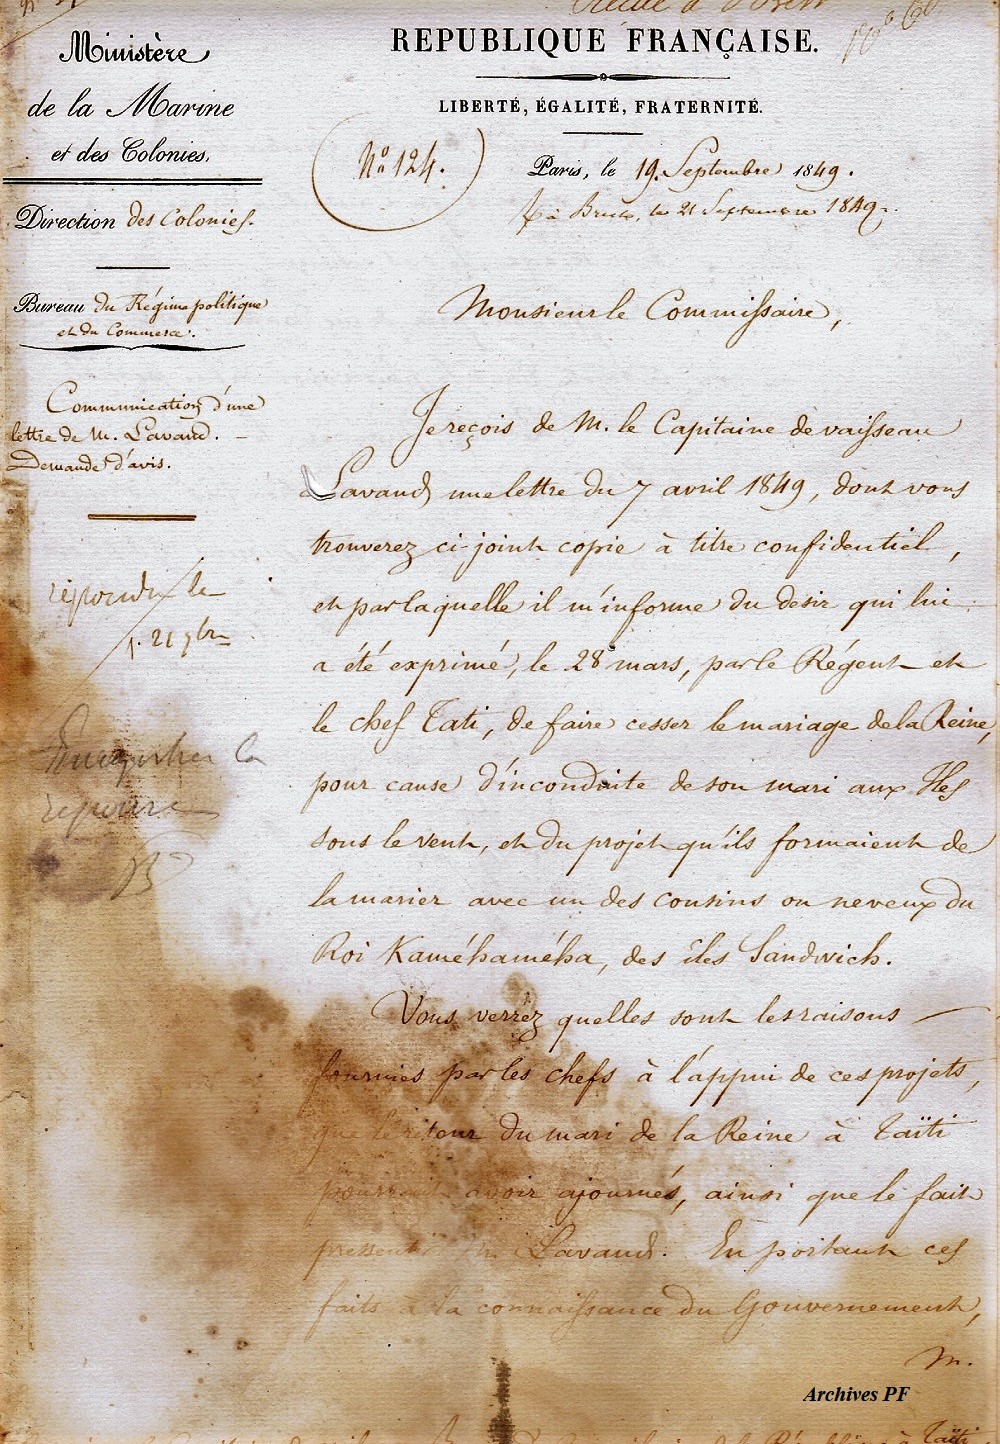 Ministère
de la Marine
et des Colonies.
Direction des Colonies.
Bureau du Régime politique
et du Commerce.
Communication d'une
lettre de M. Lavaud.
Demande d'avis.
répondu le
21 9bre
Enregistrer la
réponse
REPUBLIQUE FRANÇAISE.
LIBERTÉ, ÉGALITÉ, FRATERNITÉ.
No 124.
Paris, le 19 Septembre 1849.
à Brest, le 21 Septembre 1849.
Monsieur le Commissaire,
Je reçois de M. le Capitaine de vaisseau
Lavaud une lettre du 7 avril 1849, dont vous
trouverez ci-joint copie à titre confidentiel,
et par laquelle il m'informe du désir qui lui
a été exprimé, le 28 mars, par le Régent et
le chef Tati, de faire cesser le mariage de la Reine,
pour cause d'inconduite de son mari aux Iles
sous le vent, et du projet qu'ils formaient de
la marier avec un des cousins ou neveux du
Roi Kaméhaméha, des îles Sandwich.
Vous verrez quelles sont les raisons
fournies par les chefs à l'appui de ces projets,
que le retour du mari de la Reine à Taïti
pourrait avoir ajournés, ainsi que le fait
pressentir M. Lavaud. En portant ces
faits à la connaissance du Gouvernement,
M.
Archives PF